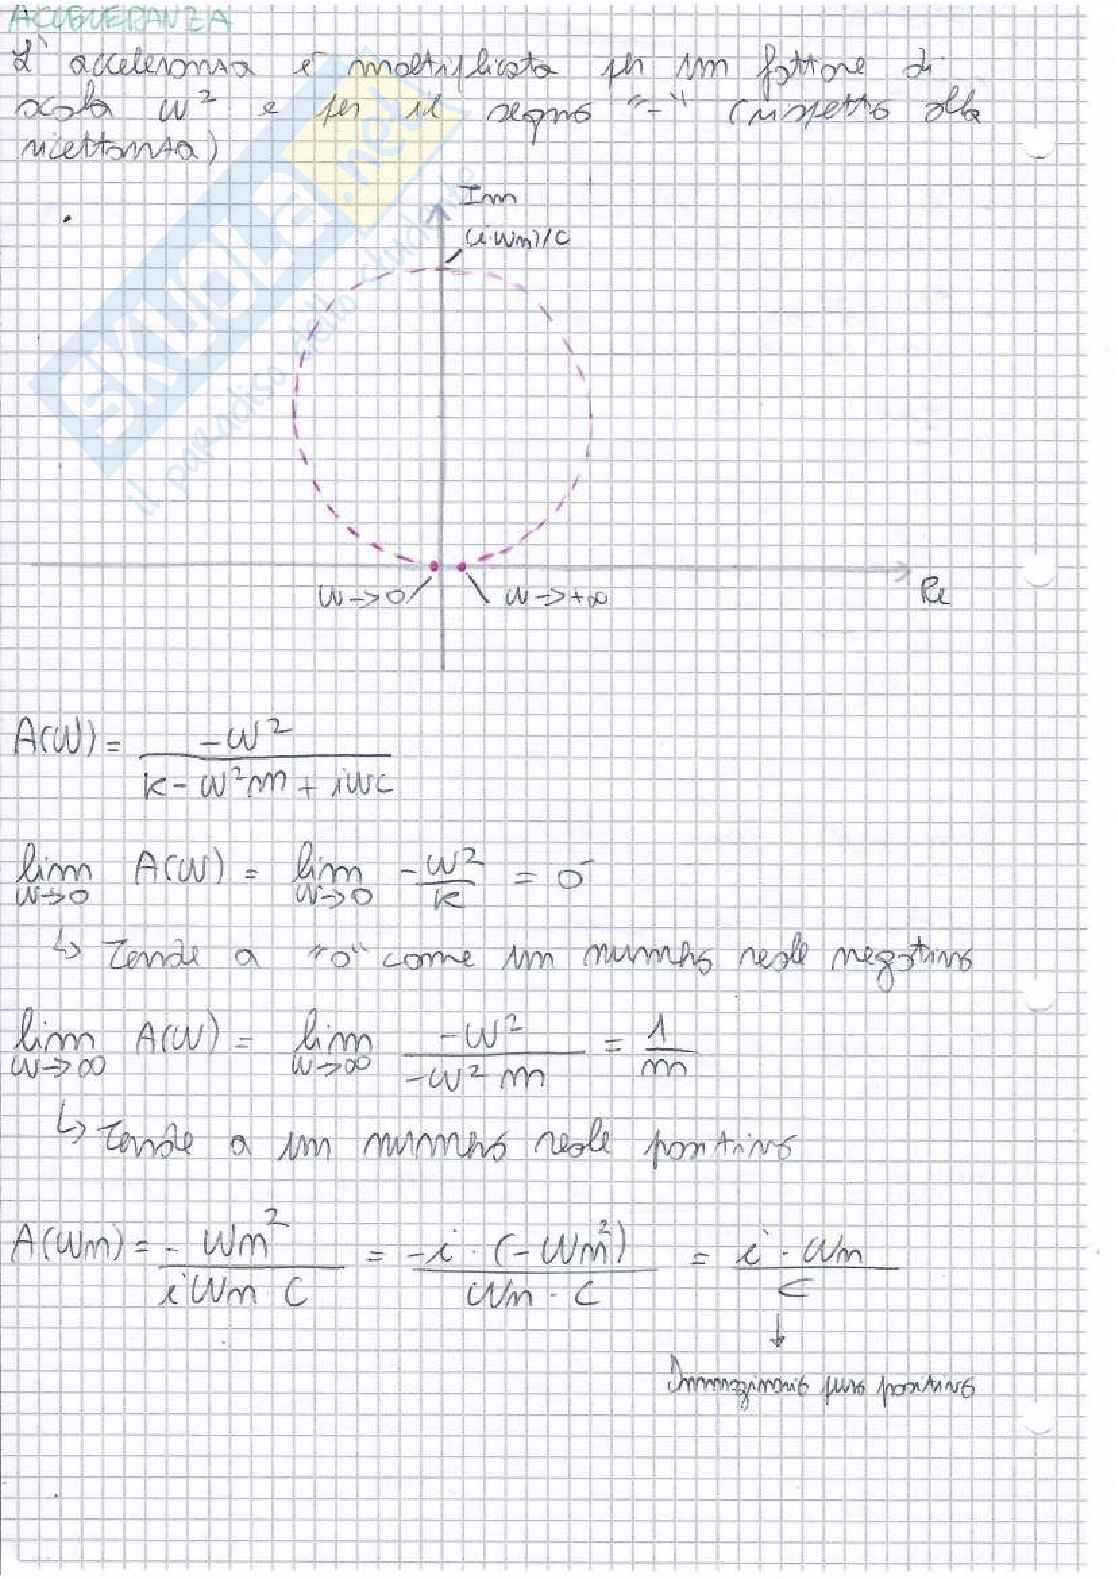 ACCELERANZA
L'acceleranza è moltiplicata per un fattore di
scala ω² e per il segno "-" (rispetto alla
ricettanza)
Im
(i·ωn)/C
ω→0
ω→+∞
Re
A(ω) = -ω² / (k - ω²m + iωc)
lim ω→0 A(ω) = lim ω→0 -ω²/k = 0⁻
↳ Tende a "0" come un numero reale negativo
lim ω→∞ A(ω) = lim ω→∞ -ω² / (-ω² m) = 1/m
↳ Tende a un numero reale positivo
A(ωn) = - ωn² / (i ωn C) = -i · (-ωn²) / (ωn · C) = i · ωn / C
↓
Immaginario puro positivo
SKUOLA.net
il paradiso dello studente